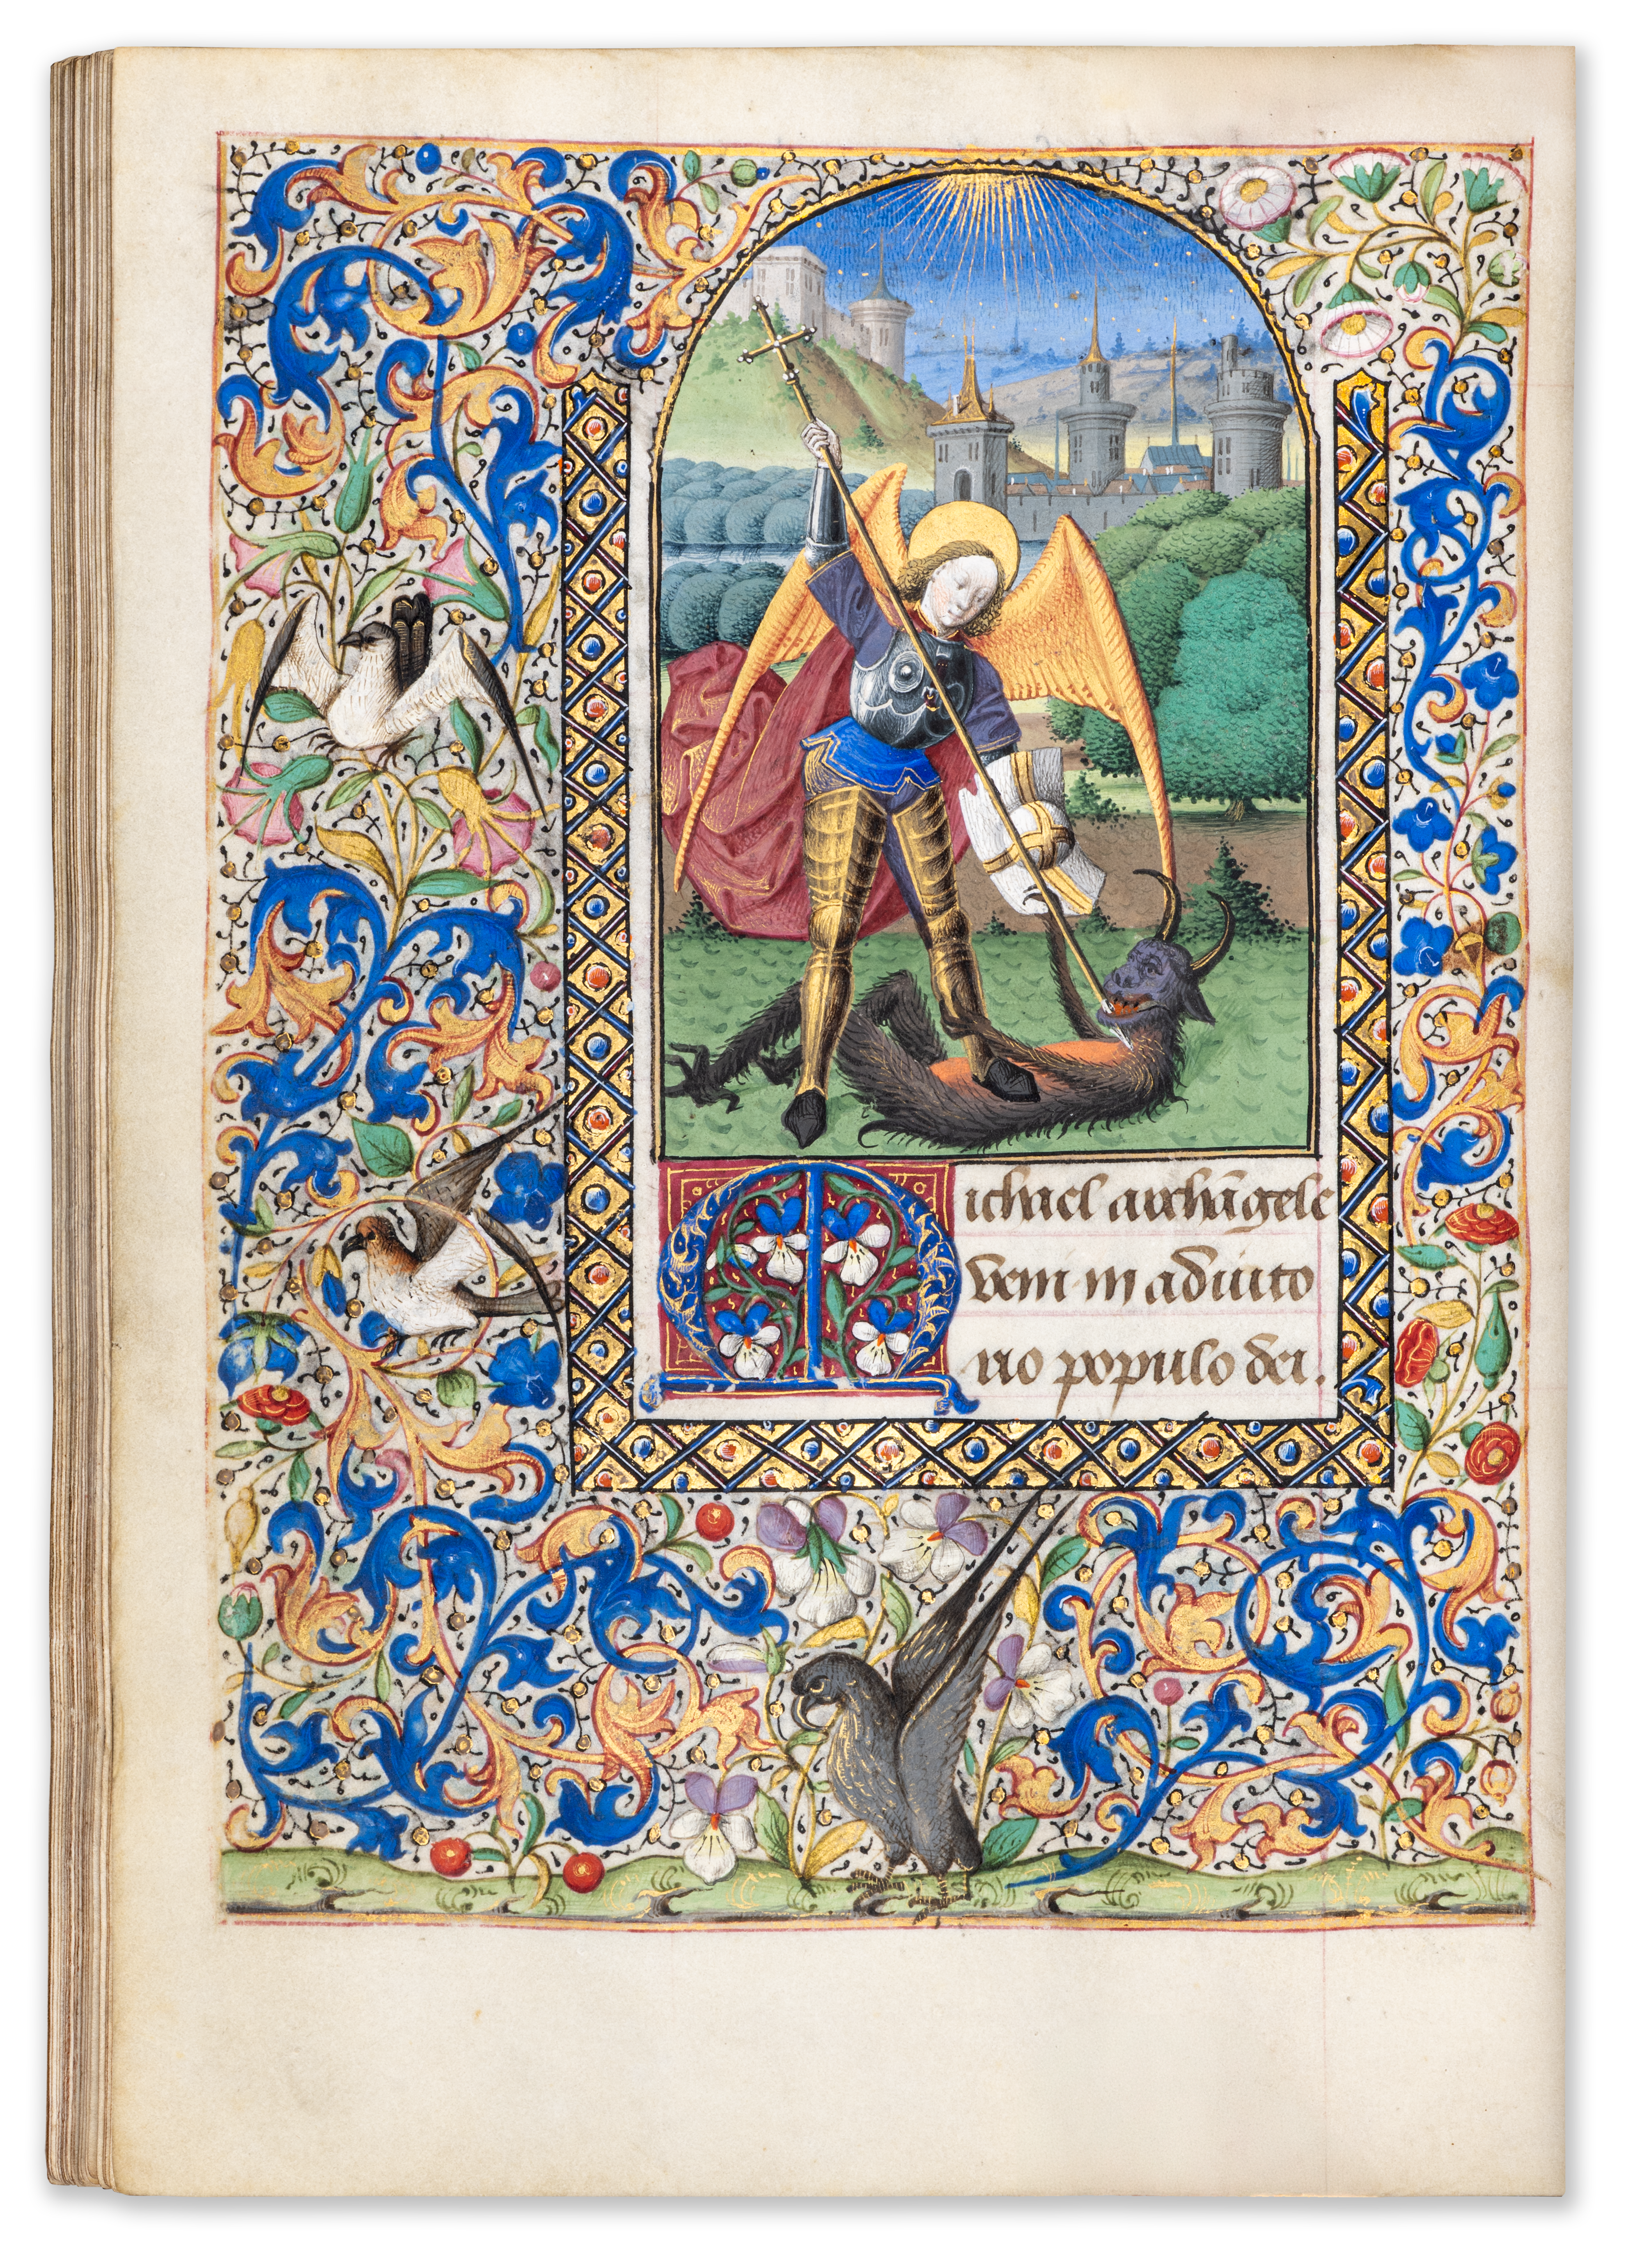 Michael archãgele
veni in adiuto
rio populo dei.